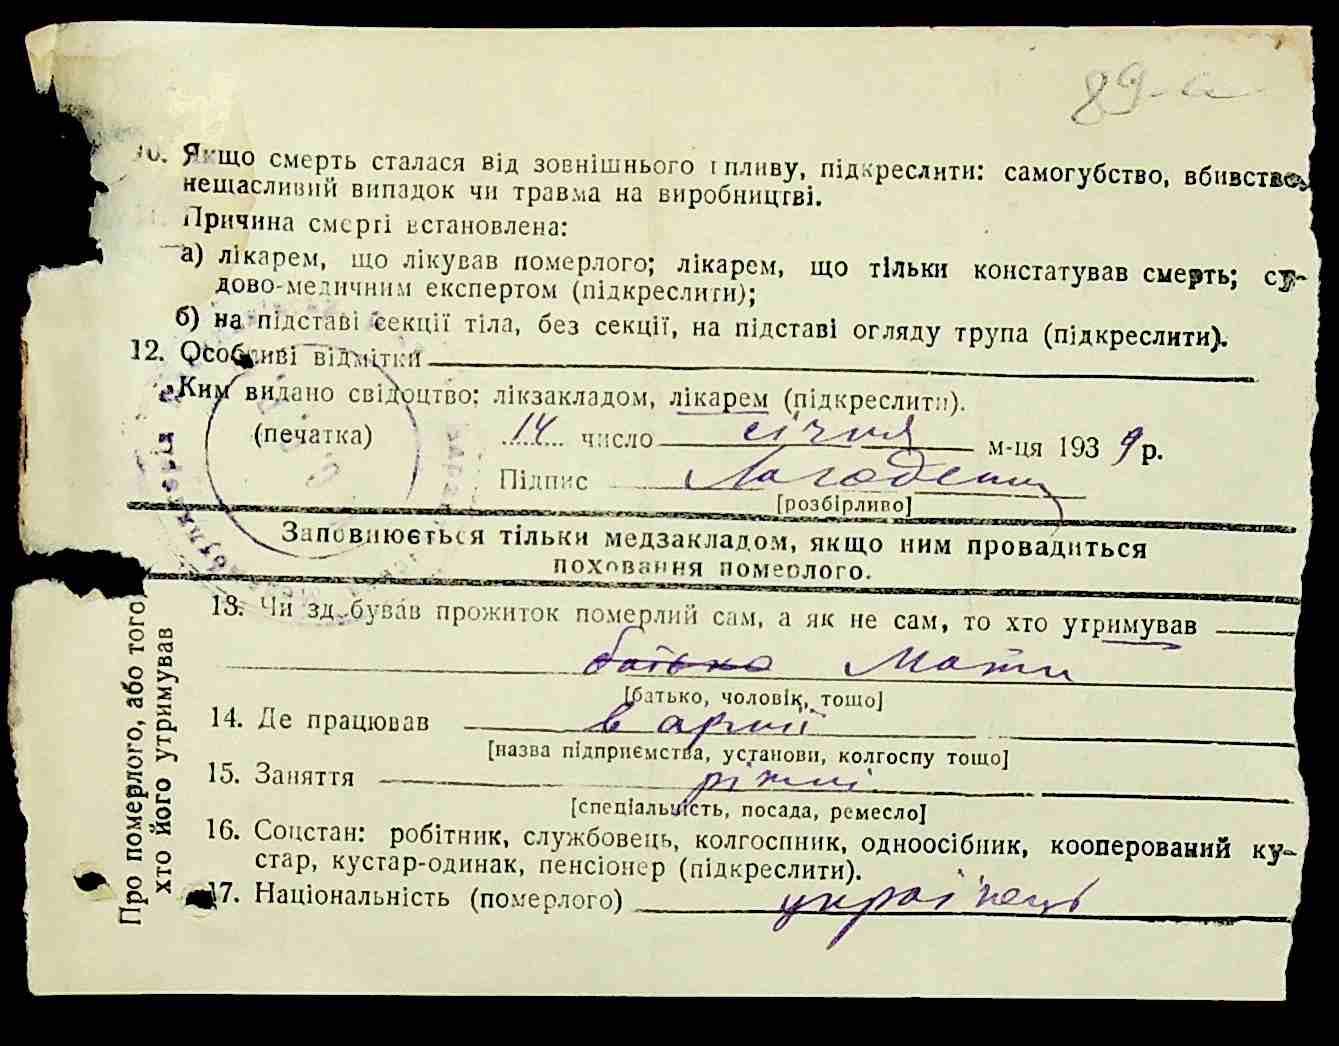 89-а
10. Якщо смерть сталася від зовнішнього впливу, підкреслити: самогубство, вбивство,
нещасливий випадок чи травма на виробництві.
Причина смерті встановлена:
а) лікарем, що лікував померлого; лікарем, що тільки констатував смерть; су-
дово-медичним експертом (підкреслити);
б) на підставі секції тіла, без секції, на підставі огляду трупа (підкреслити).
12. Особливі відмітки
Ким видано свідоцтво: лікзакладом, лікарем (підкреслити).
(печатка) 14 число січня м-ця 1939 р.
Підпис
[розбірливо]
Заповнюється тільки медзакладом, якщо ним провадиться
поховання померлого.
Про померлого, або того,
хто його утримував
13. Чи здобував прожиток померлий сам, а як не сам, то хто утримував
батько Мати
[батько, чоловік, тошо]
14. Де працював в армії
[назва підприємства, установи, колгоспу тощо]
15. Заняття різні
[спеціальність, посада, ремесло]
16. Соцстан: робітник, службовець, колгоспник, одноосібник, кооперований ку-
стар, кустар-одинак, пенсіонер (підкреслити).
17. Національність (померлого) українець